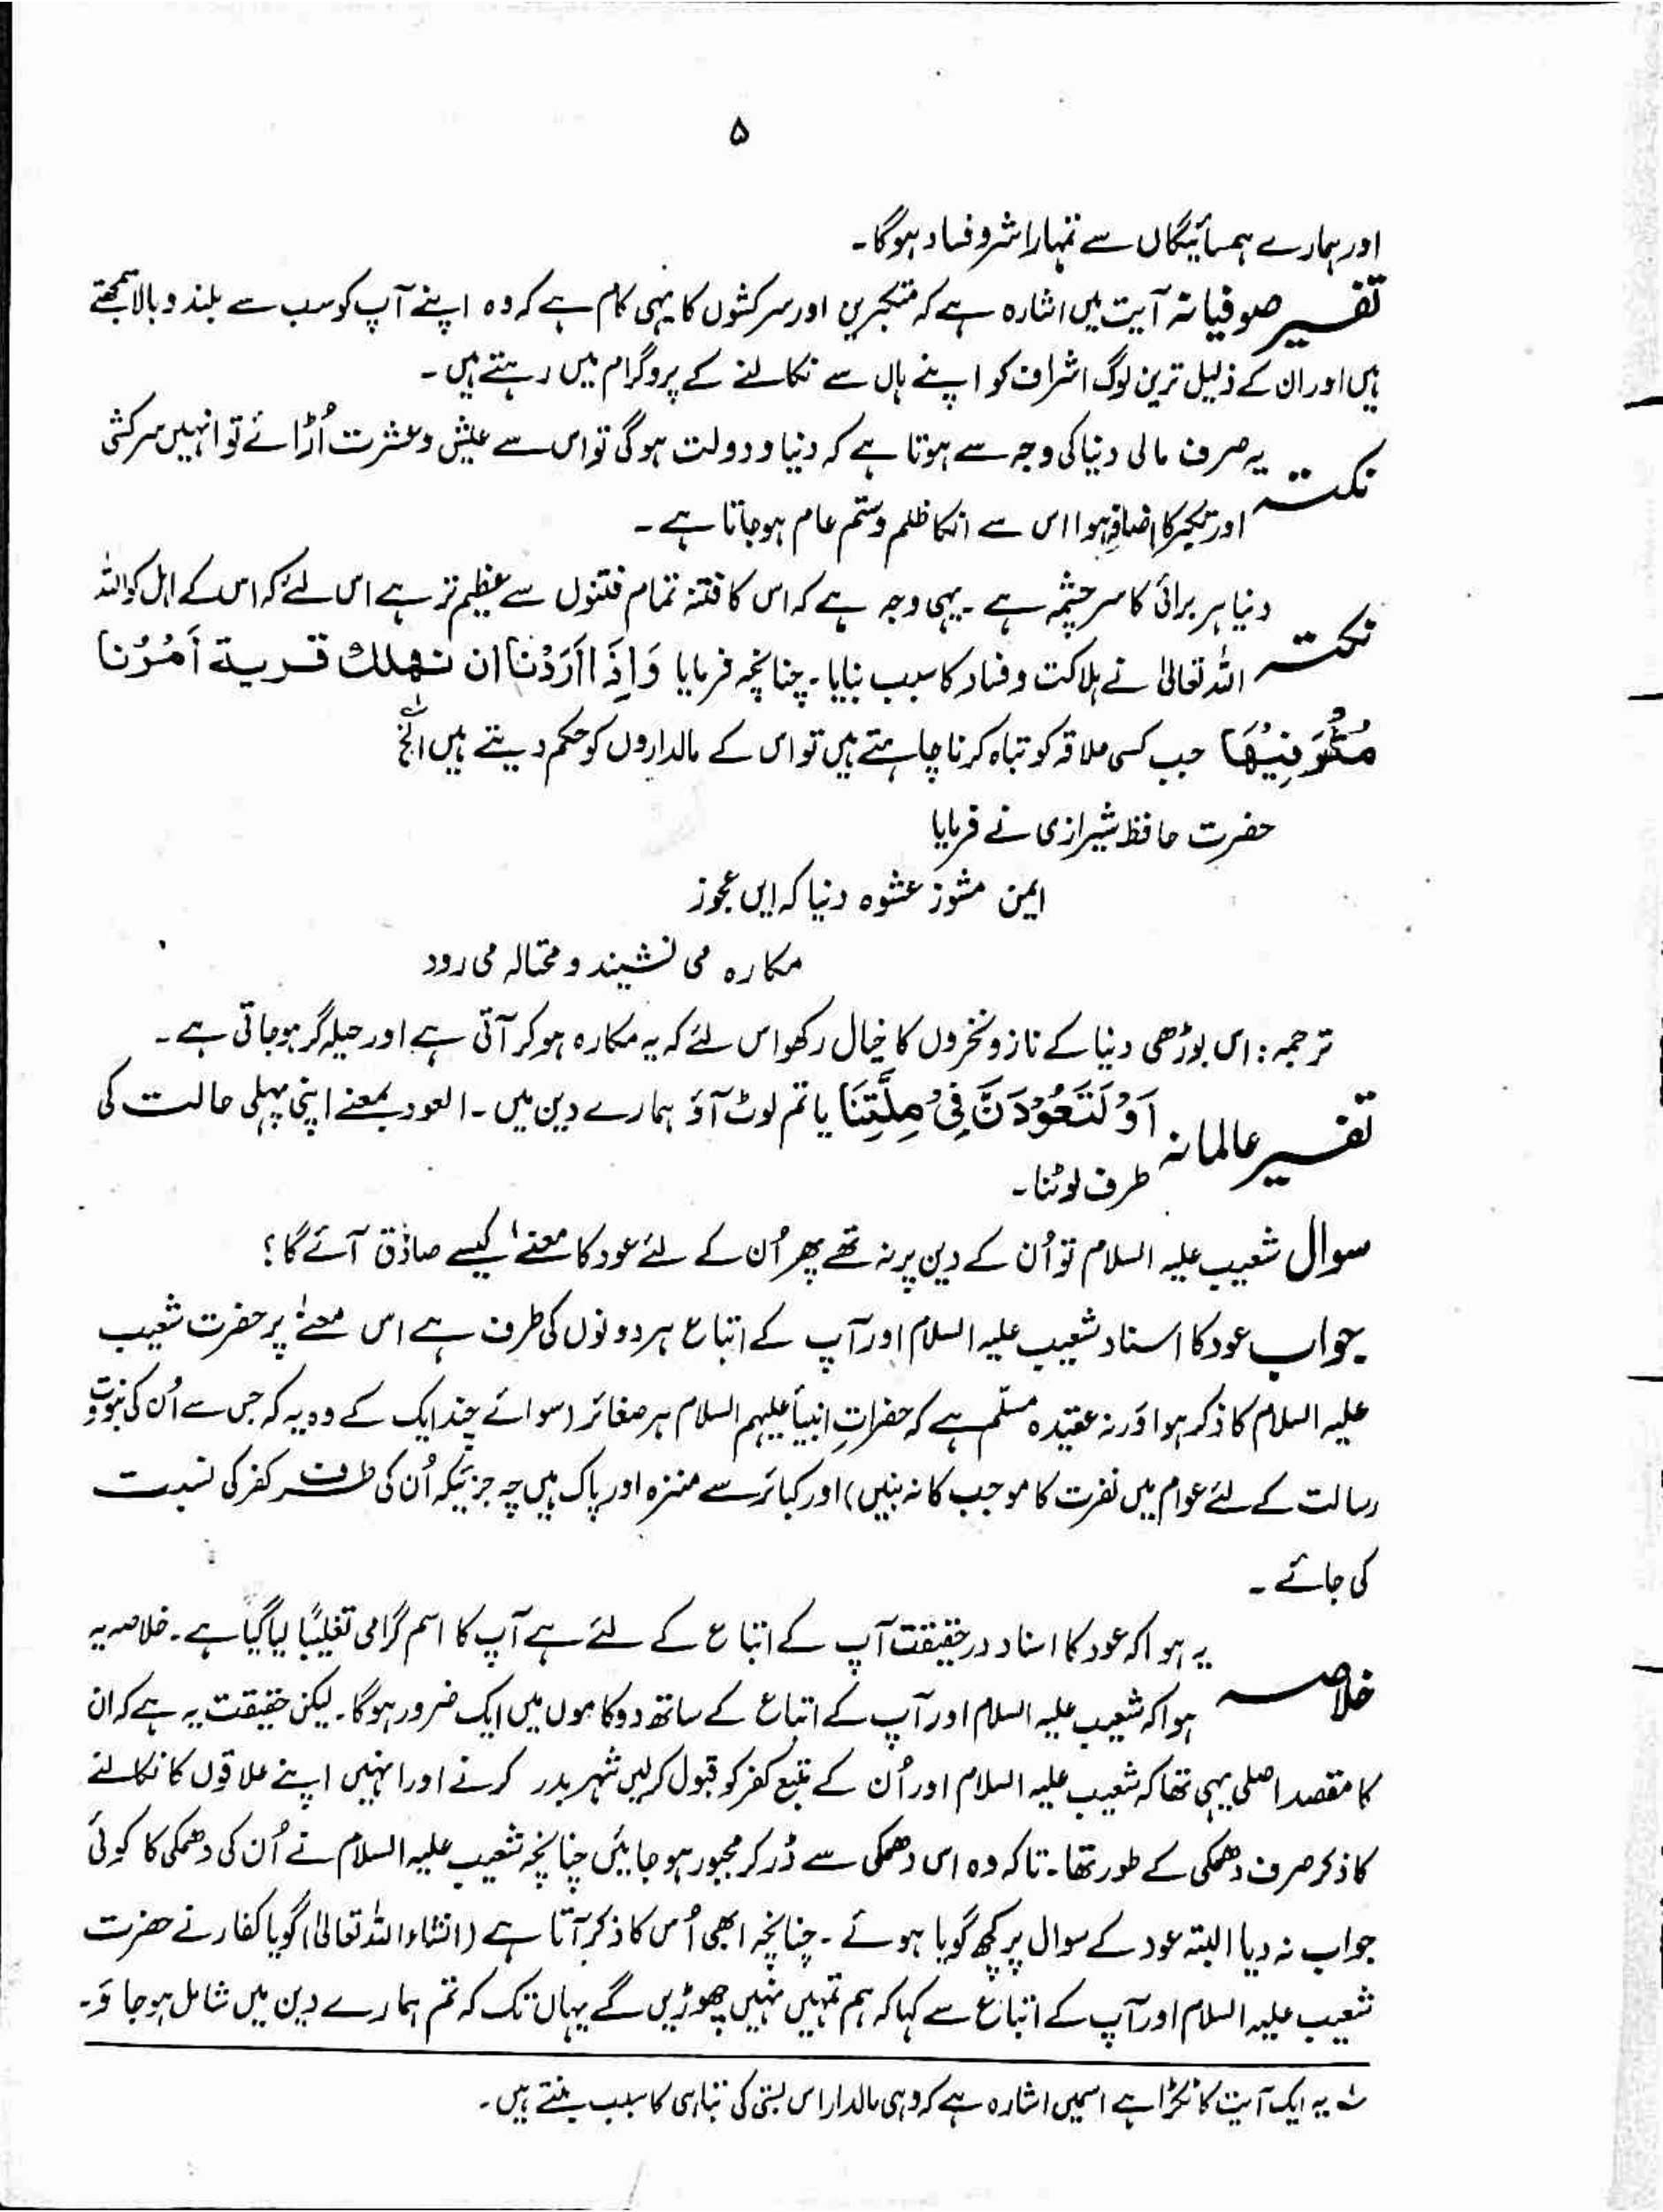 ۵
اور ہمارے ہمسائیگاں سے تمہارا شر و فساد ہوگا۔
تفسیر صوفیانہ آیت میں اشارہ ہے کہ متکبرین اور سرکشوں کا یہی کام ہے کہ وہ اپنے آپ کو سب سے بلند و بالا سمجھتے
ہیں اور ان کے ذلیل ترین لوگ اشراف کو اپنے ہاں سے نکالنے کے پروگرام میں رہتے ہیں۔
نکتہ یہ صرف مالی دنیا کی وجہ سے ہوتا ہے کہ دنیا و دولت ہوگی تو اس سے عیش و عشرت اُڑائے تو انہیں سرکشی
اور تکبر کا اضافہ ہوا اس سے انکا ظلم و ستم عام ہوجاتا ہے۔
نکتہ دنیا ہر برائی کا سرچشمہ ہے۔ یہی وجہ ہے کہ اس کا فتنہ تمام فتنوں سے عظیم تر ہے اس لئے کہ اس کے اہل کو اللہ
اللہ تعالیٰ نے ہلاکت و فساد کا سبب بنایا۔ چنانچہ فرمایا وَاِذَا اَرَدْنَا ان نهلك قرية اَمَرْنا
مُتْرَفِيْهَا جب کسی علاقہ کو تباہ کرنا چاہتے ہیں تو اس کے مالداروں کو حکم دیتے ہیں الخ
حضرت حافظ شیرازی نے فرمایا
ایمن مشوز عشوہ دنیا کہ ایں عجوز
مکارہ می نشیند و محتالہ می رود
ترجمہ: اس بوڑھی دنیا کے ناز و نخروں کا خیال رکھو اس لئے کہ یہ مکارہ ہو کر آتی ہے اور حیلہ گر ہوجاتی ہے۔
تفسیر عالمانہ اَوْ لَتَعُوْدُنَّ فِیْ مِلَّتِنَا یا تم لوٹ آؤ ہمارے دین میں۔ العود بمعنے اپنی پہلی حالت کی
طرف لوٹنا۔
سوال شعیب علیہ السلام تو اُن کے دین پر نہ تھے پھر اُن کے لئے عود کا معنےٰ کیسے صادق آئے گا؟
جواب عود کا اسناد شعیب علیہ السلام اور آپ کے اتباع ہر دونوں کی طرف ہے اس معنےٰ پر حضرت شعیب
علیہ السلام کا ذکر ہوا ورنہ عقیدہ مسلّم ہے کہ حضراتِ انبیأ علیہم السلام ہر صغائر (سوائے چند ایک کے وہ یہ کہ جس سے اُن کی نبوت و
رسالت کے لئے عوام میں نفرت کا موجب کا نہ بنیں) اور کبائر سے منزہ اور پاک ہیں چہ جائیکہ اُن کی طرف کفر کی نسبت
کی جائے۔
خلاصہ یہ ہوا کہ عود کا اسناد در حقیقت آپ کے اتباع کے لئے ہے آپ کا اسم گرامی تغلیبًا لیا گیا ہے۔ خلاصہ یہ
ہوا کہ شعیب علیہ السلام اور آپ کے اتباع کے ساتھ دو کاموں میں ایک ضرور ہوگا۔ لیکن حقیقت یہ ہے کہ ان
کا مقصد اصلی یہی تھا کہ شعیب علیہ السلام اور اُن کے تبع کفر کو قبول کرلیں شہر بدر کرنے اور انہیں اپنے علاقوں کا نکالنے
کا ذکر صرف دھمکی کے طور تھا۔ تاکہ وہ اس دھمکی سے ڈر کر مجبور ہو جائیں چنانچہ شعیب علیہ السلام نے اُن کی دھمکی کا کوئی
جواب نہ دیا البتہ عود کے سوال پر کچھ گویا ہوئے۔ چنانچہ ابھی اُس کا ذکر آتا ہے (انشاء اللہ تعالیٰ) گویا کفار نے حضرت
شعیب علیہ السلام اور آپ کے اتباع سے کہا کہ ہم تمہیں نہیں چھوڑیں گے یہاں تک کہ تم ہمارے دین میں شامل ہوجاؤ۔
یہ ایک آیت کا ٹکڑا ہے اسمیں اشارہ ہے کہ وہی مالدار اس بستی کی تباہی کا سبب بنتے ہیں۔